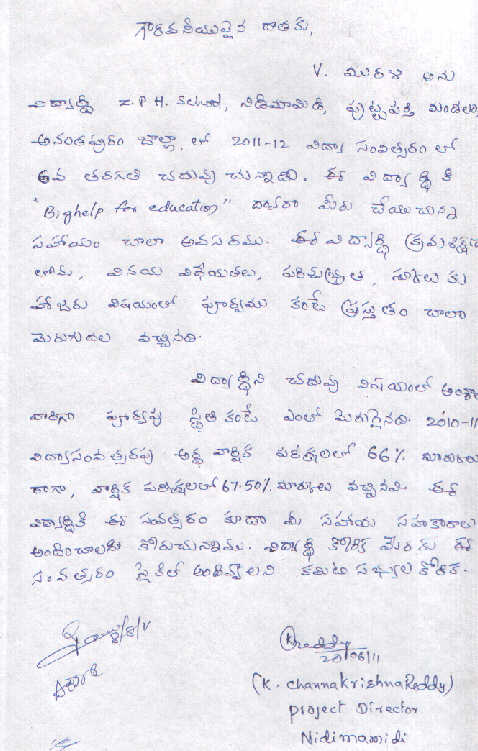 గౌరవనీయులైన దాతకు,
V. మురళి అను
విద్యార్థి Z.P.H. School, నిడిమామిడి, పుట్టపర్తి మండలం,
అనంతపురం జిల్లా లో 2011-12 విద్యా సంవత్సరం లో
తరగతి చదువు చున్నాడు. ఈ విద్యార్థి కి
"Bighelp for education" ద్వారా మీరు చేయుచున్న
సహాయం చాలా అవసరము. ఈ విద్యార్థి క్రమశిక్షణ
లోను, వినయ విధేయతలు, పరిశుభ్రత, స్కూలు కు
హాజరు విషయంలో పూర్వము కంటే ప్రస్తుతం చాలా
మెరుగుదల వచ్చినది.
విద్యార్థిని చదువు విషయంలో
పూర్వపు స్థితి కంటే ఎంతో మెరుగైనది. 2010-11
విద్యాసంవత్సరపు అర్థ వార్షిక పరీక్షలలో 66% మార్కులు
రాగా, వార్షిక పరీక్షలలో 67.50% మార్కులు వచ్చినవి. ఈ
విద్యార్థికి ఈ సంవత్సరం కూడా మీ సహాయ సహకారాలు
అందించాలని కోరుచున్నాము. విద్యార్థి కోరిక మేరకు ఈ
సంవత్సరం సైకిల్ ఇవ్వాలని కమిటి సభ్యుల కోరిక.
KReddy
20/06/11
(K. channakrishnaReddy)
project Director
Nidimamidi